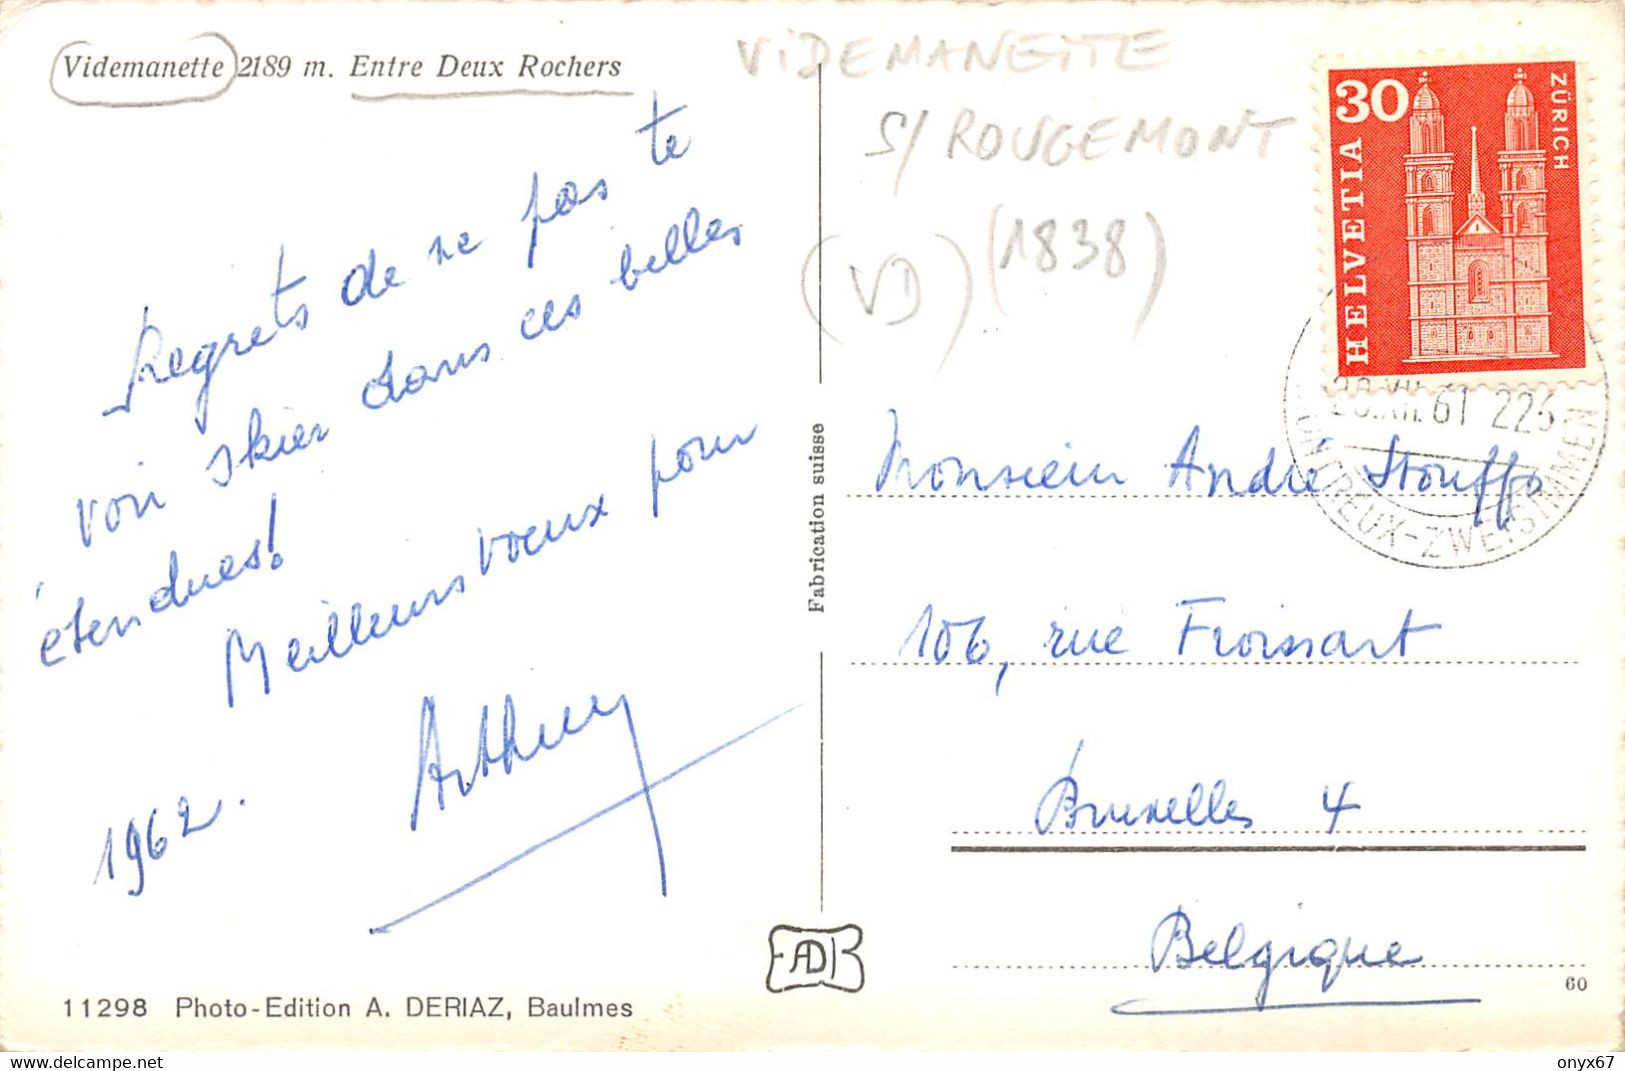 Videmanette 2189 m. Entre Deux Rochers
VIDEMANETTE
S/ ROUGEMONT
(VD) (1838)
Regrets de ne pas te
voir skier dans ces belles
étendues!
Meilleurs voeux pour
1962.
Arthur
11298 Photo-Edition A. DERIAZ, Baulmes
Fabrication suisse
ADB
30
ZÜRICH
HELVETIA
.XII.61 226
MONTREUX-ZWEISIMMEN
Monsieur André
106, rue Froissart
Bruxelles 4
Belgique
60
delcampe.net
onyx67